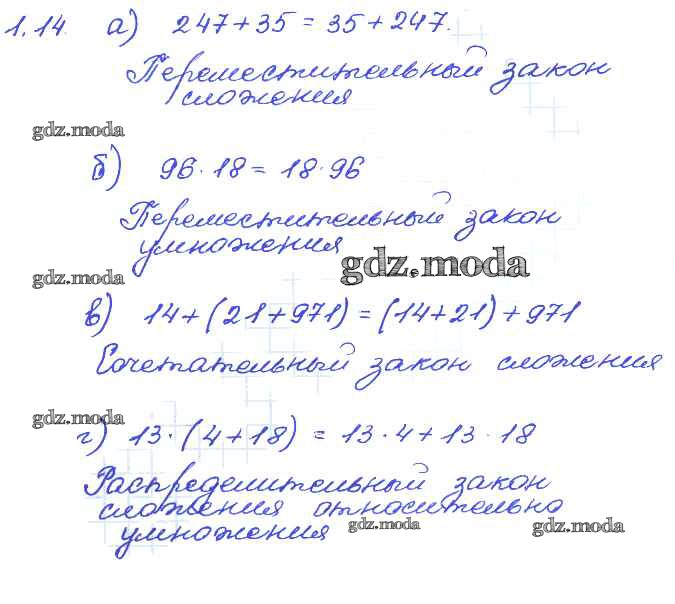 1.14. а) 247+35 = 35+247.
Переместительный закон
сложения
gdz.moda
б) 96·18 = 18·96
Переместительный закон
умножения
gdz.moda
gdz.moda
в) 14+(21+971) = (14+21)+971
Сочетательный закон сложения
gdz.moda
г) 13·(4+18) = 13·4+13·18
Распределительный закон
сложения относительно
умножения
gdz.moda
gdz.moda